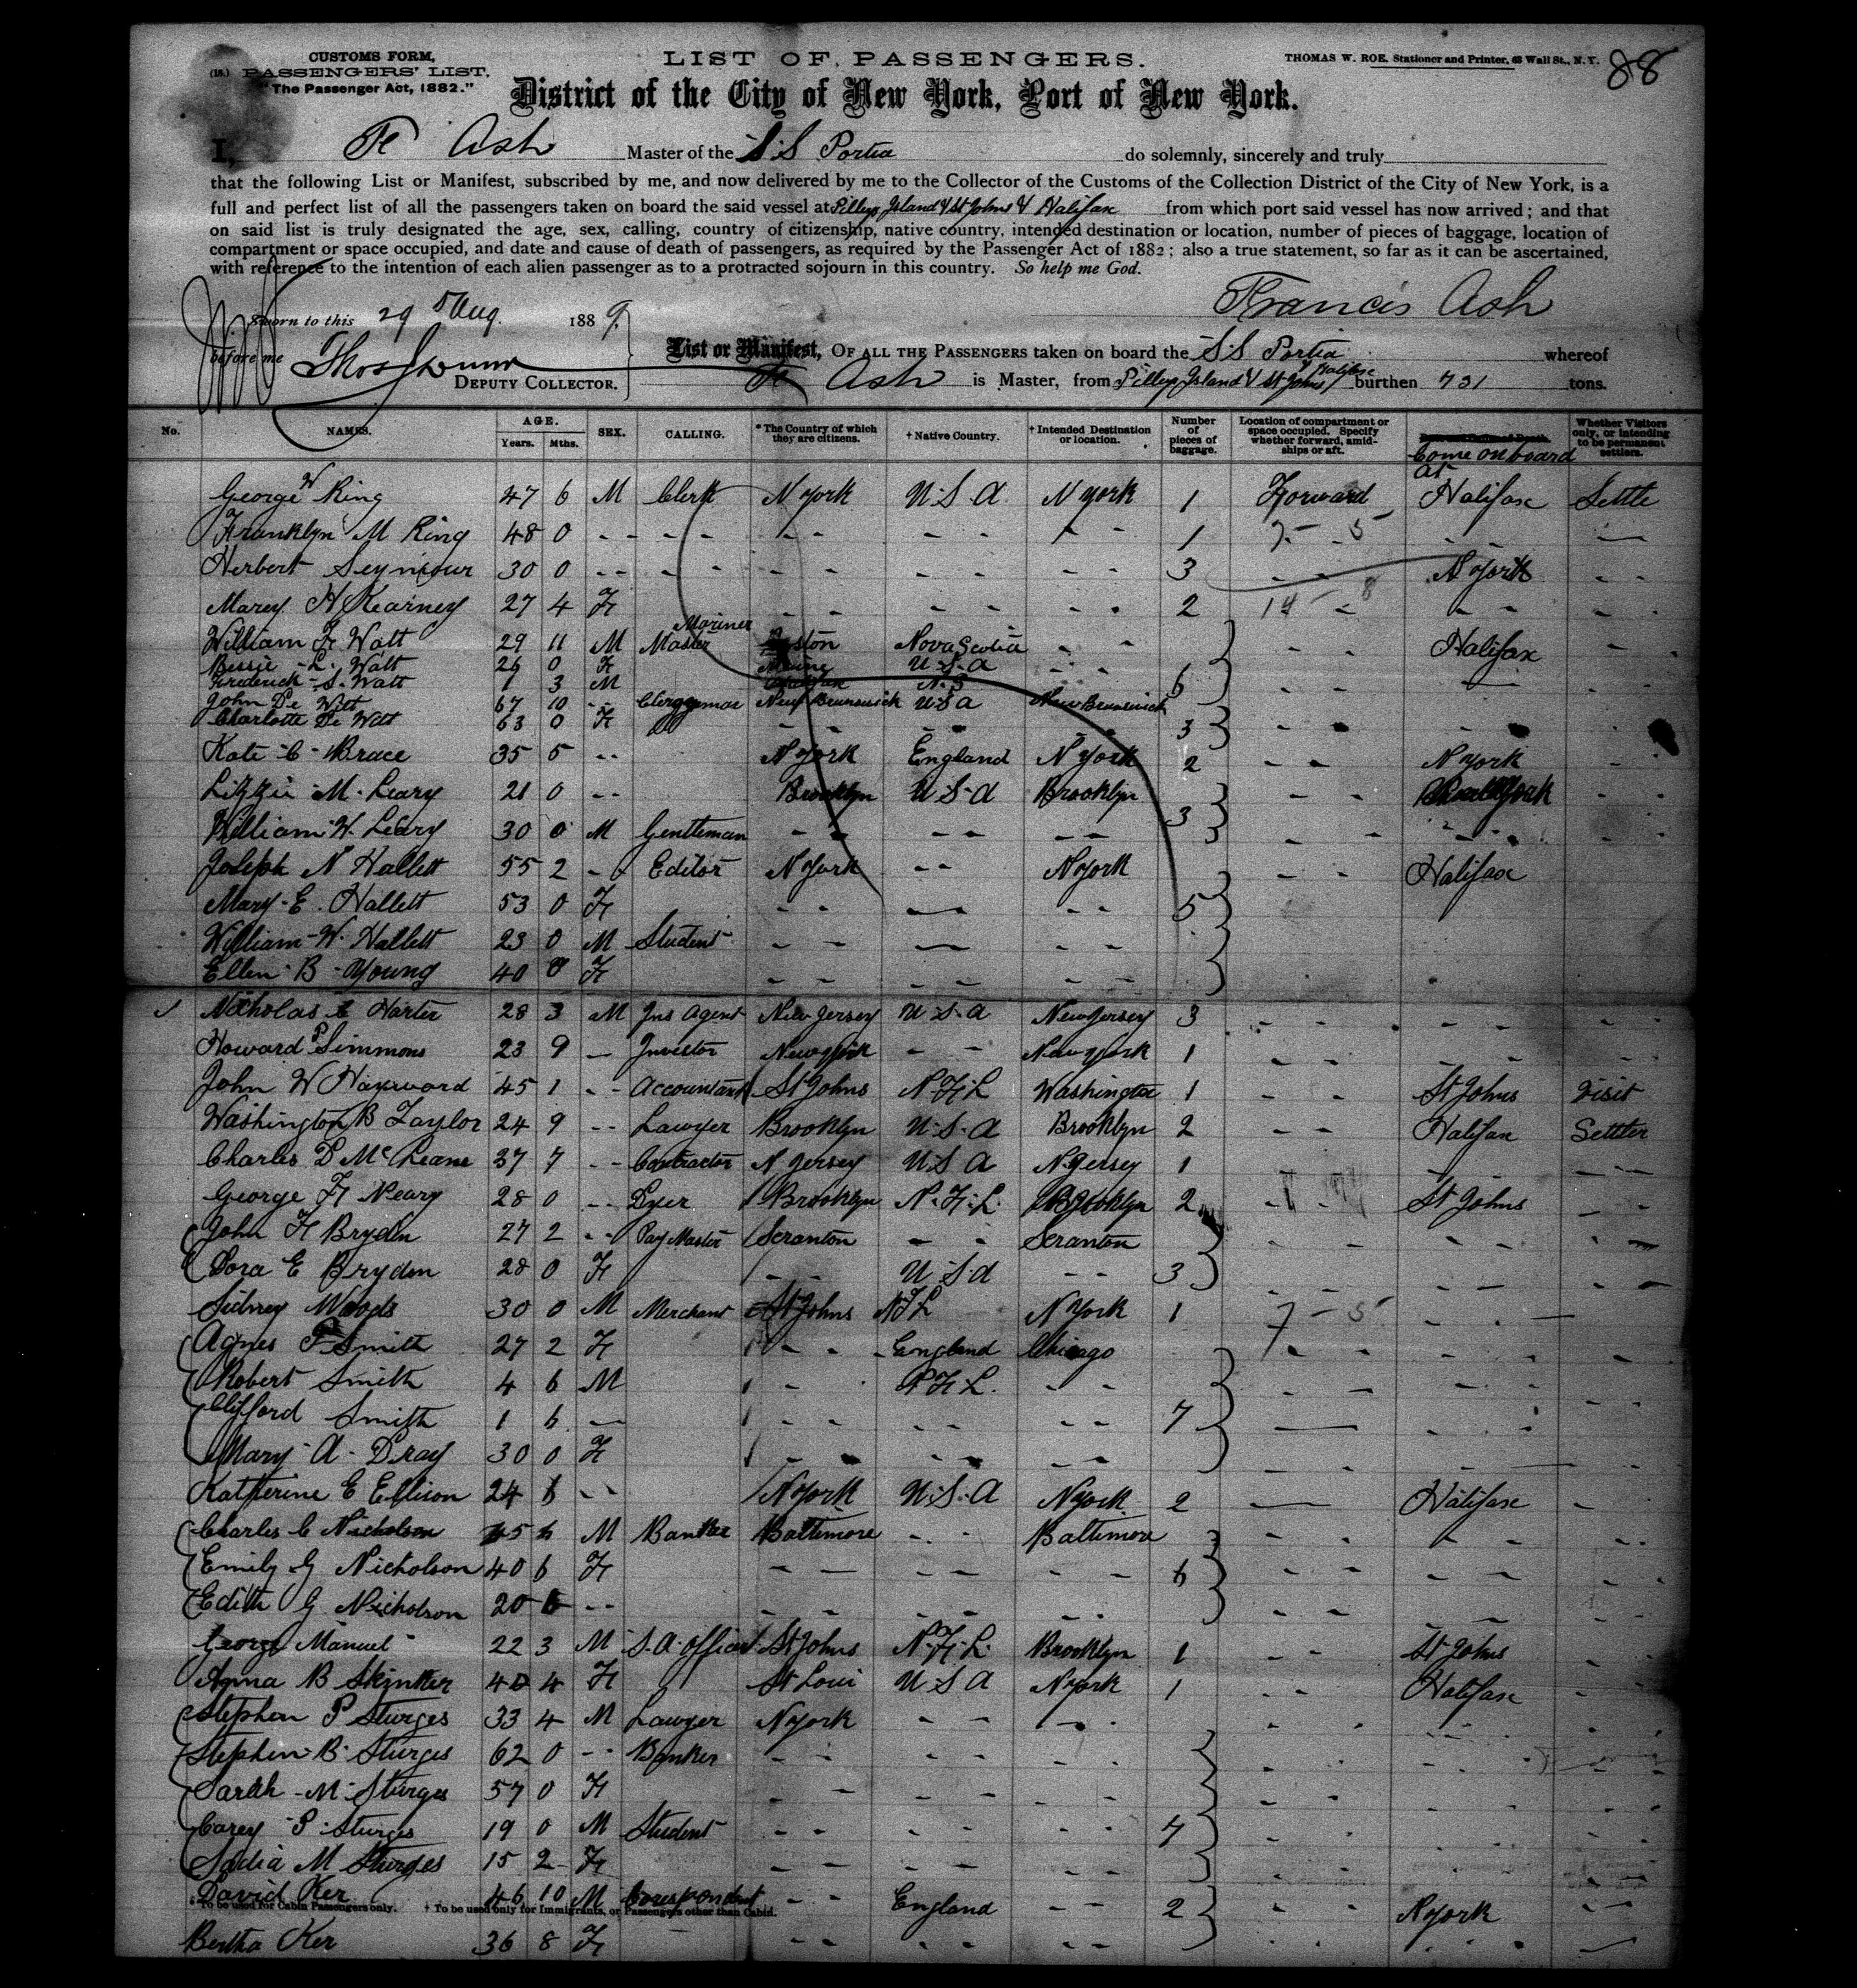 CUSTOMS FORM,
(18.) PASSENGERS' LIST.
"The Passenger Act, 1882."
LIST OF PASSENGERS.
THOMAS W. ROE, Stationer and Printer, 63 Wall St., N.Y.
88
District of the City of New York, Port of New York.
I, Fr Ash Master of the S.S Portia do solemnly, sincerely and truly
that the following List or Manifest, subscribed by me, and now delivered by me to the Collector of the Customs of the Collection District of the City of New York, is a
full and perfect list of all the passengers taken on board the said vessel at Pilleys Island & St Johns & Halifax from which port said vessel has now arrived; and that
on said list is truly designated the age, sex, calling, country of citizenship, native country, intended destination or location, number of pieces of baggage, location of
compartment or space occupied, and date and cause of death of passengers, as required by the Passenger Act of 1882; also a true statement, so far as it can be ascertained,
with reference to the intention of each alien passenger as to a protracted sojourn in this country. So help me God.
Sworn to this 29th Aug. 1889
Francis Ash
before me
DEPUTY COLLECTOR.
List or Manifest, OF ALL THE PASSENGERS taken on board the S.S Portia whereof
Fr Ash is Master, from Pilleys Island & St Johns & Halifax burthen 731 tons.
No. NAMES. AGE. Years. Mths. SEX. CALLING. * The Country of which they are citizens. † Native Country. † Intended Destination or location. Number of pieces of baggage. Location of compartment or space occupied. Specify whether forward, amidships or aft. Come on board at Whether Visitors only, or intending to be permanent settlers.
George W King 47 6 M Clerk N York U S A N York 1 Forward Halifax Settle
Franklyn M King 48 0 - - - - - - - - - 1 7 - 5 - - -
Herbert Seymour 30 0 - - - - - - - - - - 3 - - N York - -
Marey H Kearney 27 4 F - - - - - - 2 14 - 8 - - - -
William F Watt 29 11 M Master Mariner Boston Nova Scotia - - - - Halifax - -
Bessie L. Watt 26 0 F Maine U.S.A - -
Frederick S. Watt 1 3 M N.S 6 - - - - -
John De Witt 67 10 - - Clergyman New Brunswick U S A New Brunswick
Charlotte De Witt 63 0 F - - - - - - 3 - - - - -
Kate C Brace 35 5 - - N York England N York 2 - - N York -
Lizzie M. Leary 21 0 - - Brooklyn U S A Brooklyn - - - -
William H. Leary 30 0 M Gentleman - - - - - - 3 - - - - - -
Joseph N Hallett 55 2 - - Editor N York - - N York - - Halifax
Mary E. Hallett 53 0 F - - - - - 5
William W. Hallett 23 0 M Student - - - - -
Ellen B Young 40 0 F - - - - - -
Nicholas Harter 28 3 M Ins Agent New Jersey U S A New Jersey 3 - - - - - -
Howard P Simmons 23 9 - Investor New York - - New York 1 - - - - - -
John W Hayward 45 1 - - Accountant St Johns N.F.L Washington 1 - - St Johns Visit
Washington B Taylor 24 9 - - Lawyer Brooklyn U.S.A Brooklyn 2 - - Halifax Settler
Charles D McLeane 37 7 - - Contractor N Jersey U S A N Jersey 1 - - - -
George F Neary 28 0 - - Dyer Brooklyn N.F.L. Brooklyn 2 - - St Johns - -
John F Bryden 27 2 - - Pay Master Scranton - - Scranton - - - - - -
Dora E Bryden 28 0 F - - U S A - - 3 - - - - - -
Sidney Woods 30 0 M Merchant St Johns N F L N York 1 7 - 5 - - -
Agnes P Smith 27 2 F - - England Chicago - - - - - -
Robert Smith 4 6 M - - N F L. - - - - - - - -
Clifford Smith 1 6 - - - - - - - 7 - - - - -
Mary A. Pray 30 0 F - - - - - - - - - - -
Katherine E Ellison 24 6 - - N York U.S.A N York 2 - Halifax -
Charles C Nicholson 45 6 M Banker Baltimore - - Baltimore - - - - -
Emily G Nicholson 40 6 F - - - - - - 6 - - - - - -
Edith G Nicholson 20 6 - - - - - - - - - - - - -
George Manuel 22 3 M S.A. officer St Johns N.F.L. Brooklyn 1 - - St Johns -
Anna B Skinker 40 4 F St Loui U S A N York 1 - - Halifax -
Stephen P Sturges 33 4 M Lawyer N York - - - - - - - - -
Stephen B. Sturges 62 0 - - Banker - - - - - - - - - - -
Sarah M. Sturges 57 0 F - - - - - - - - - - -
Carey P Sturges 19 0 M Student - - - - - - 7 - - - - -
Sadie M Sturges 15 2 F - - - - - - - - - - -
David Ker 46 10 M Correspondent - - England - - 2 - - N York - -
* To be used for Cabin Passengers only. † To be used only for Immigrants, or Passengers other than Cabin.
Bertha Ker 36 8 F - - - - - - - - - - -